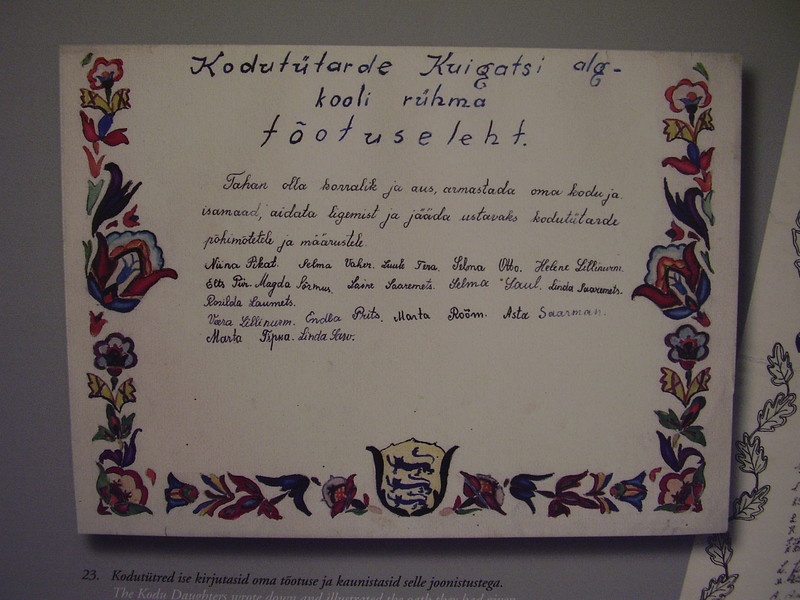 Kodutütarde Kuigatsi alg-
kooli rühma
tõotuseleht.
Tahan olla korralik ja aus, armastada oma kodu ja
isamaad, aidata ligemist ja jääda ustavaks kodutütarde
põhimõtetele ja määrustele.
Niina Pikat. Selma Vaher. Luule Tera. Selma Otto. Helene Lillinurm.
Ells Piir. Magda Sõrmus. Laine Saaremets. Selma Saul. Linda Saaremets.
Rosilda Laumets.
Veera Lillinurm. Endla Prits. Marta Rõõm. Asta Saarman.
Marta Tipua. Linda Saar.
23. Kodutütred ise kirjutasid oma tõotuse ja kaunistasid selle joonistustega.
The Kodu Daughters wrote down and illustrated the oath they had given